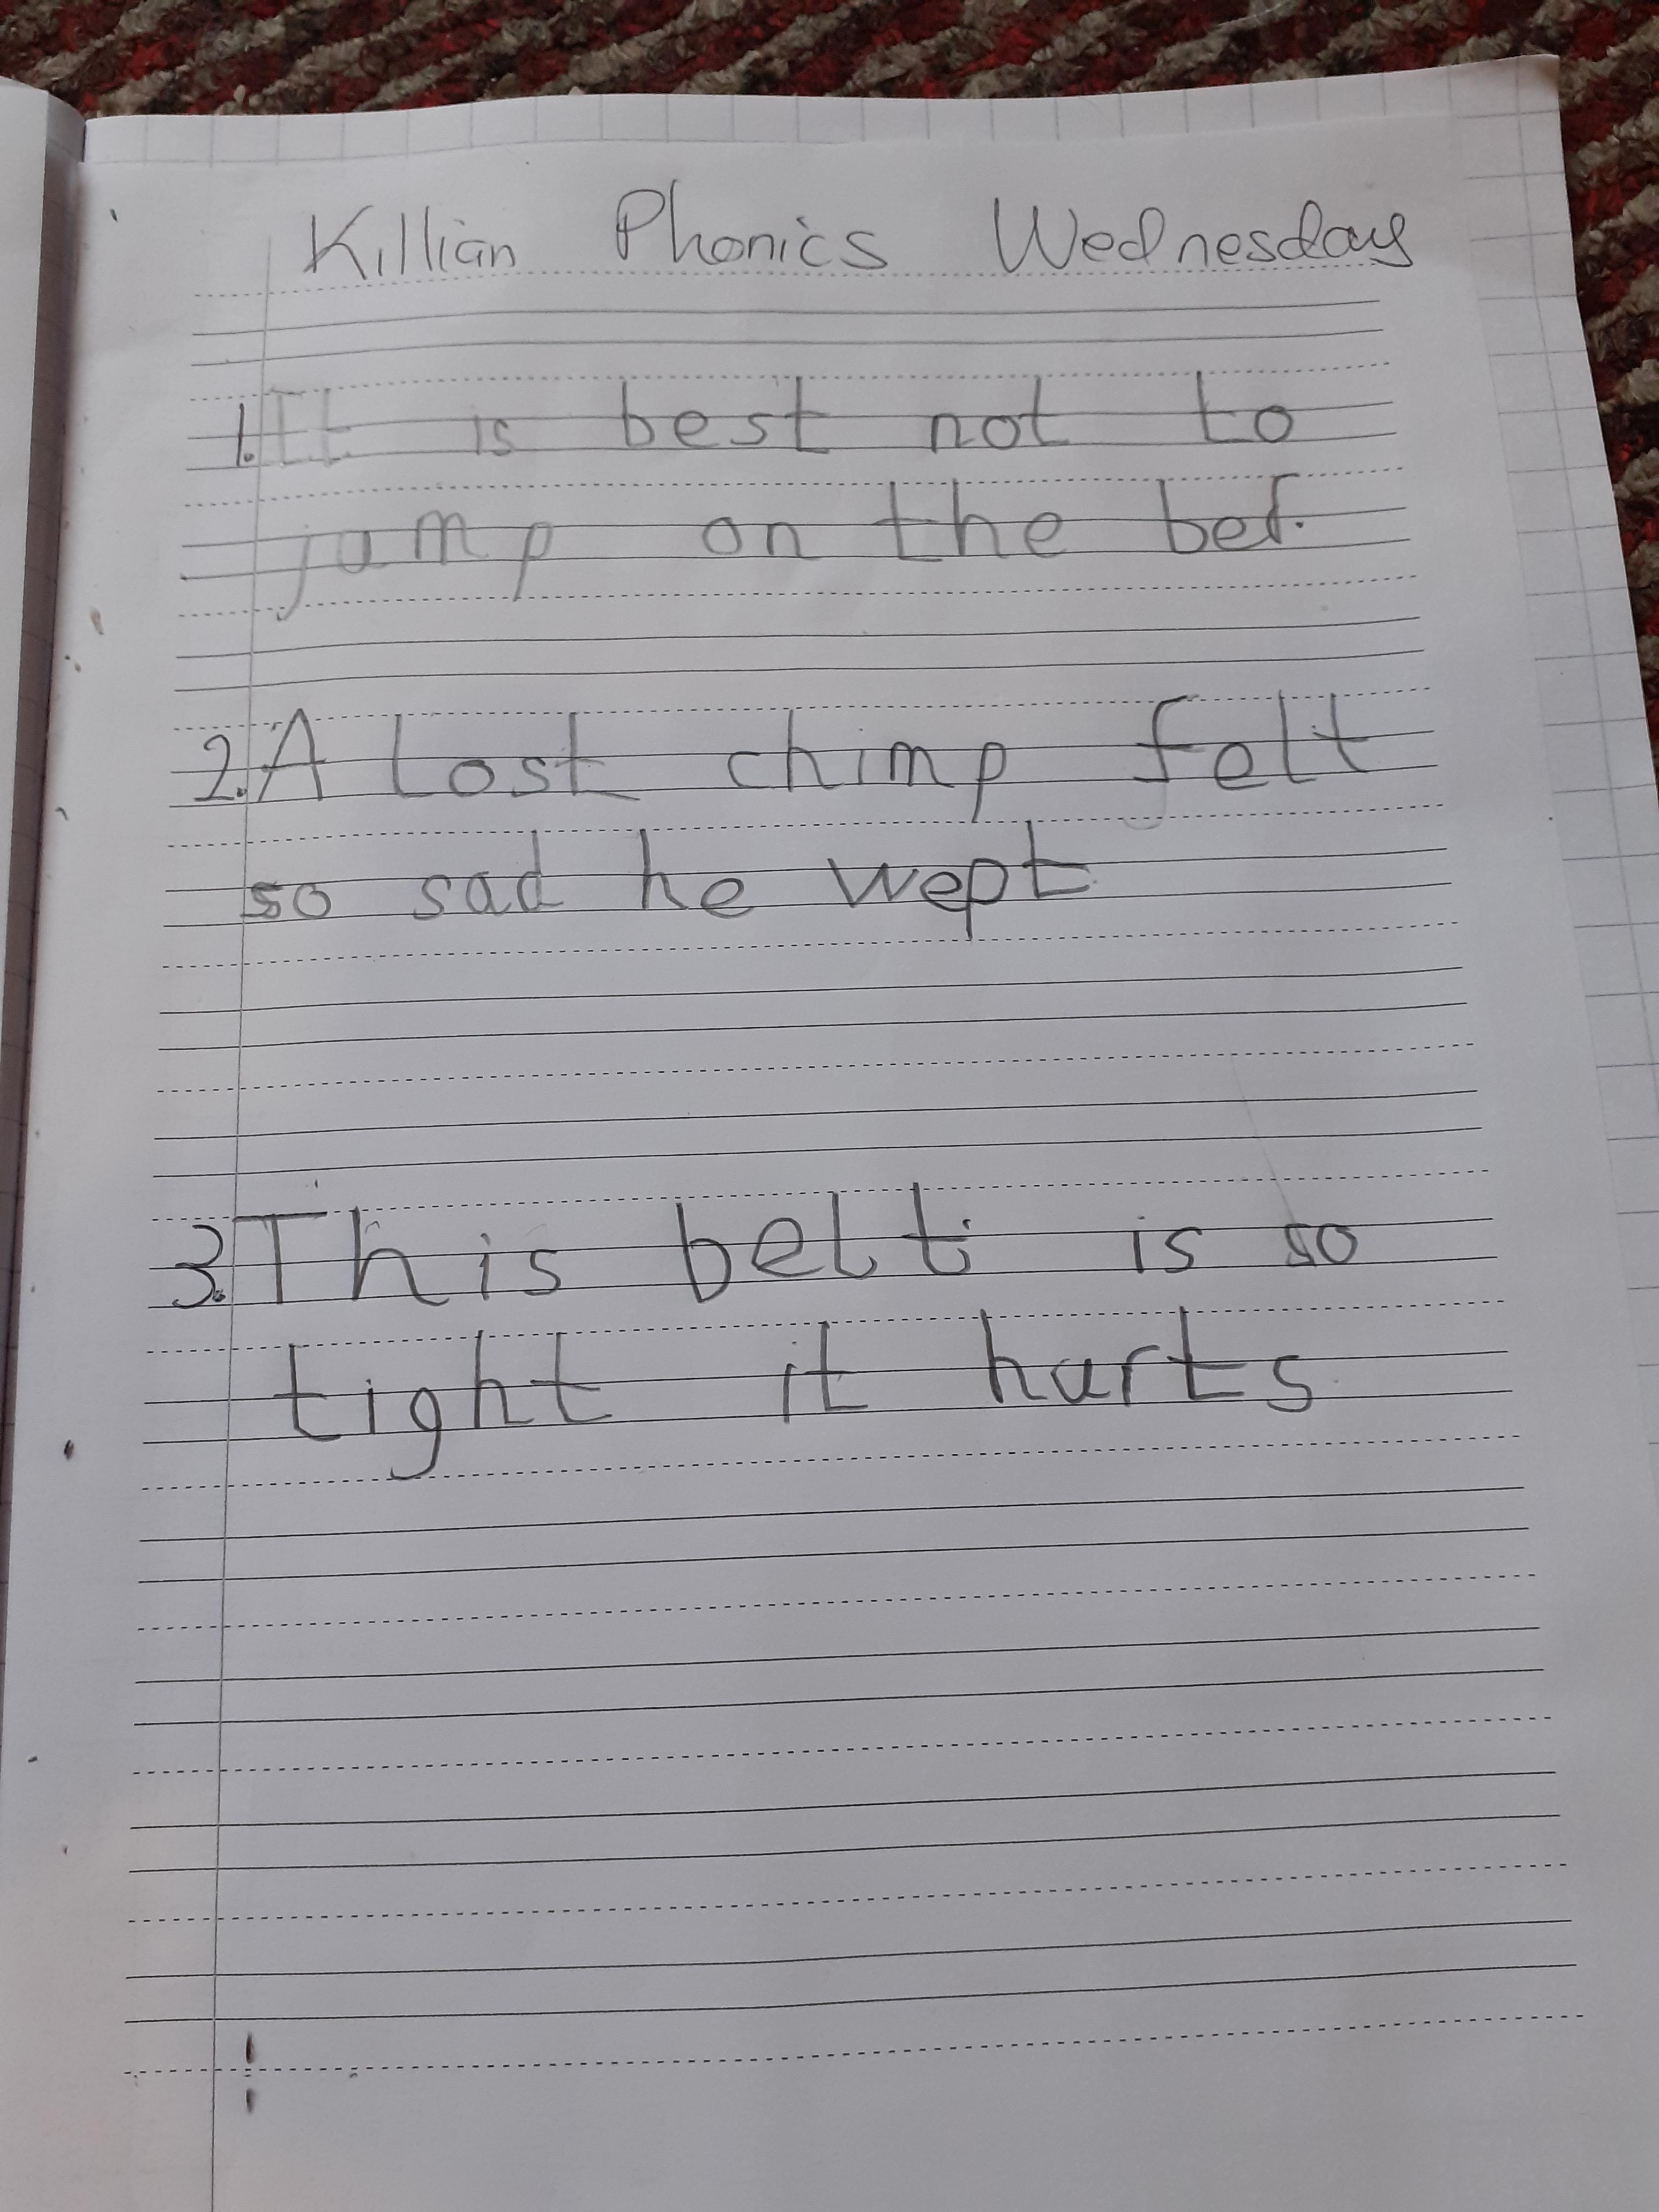 Killian Phonics Wednesday
1. It is best not to
jump on the bed.
2. A lost chimp felt
so sad he wept.
3. This belt is so
tight it hurts.